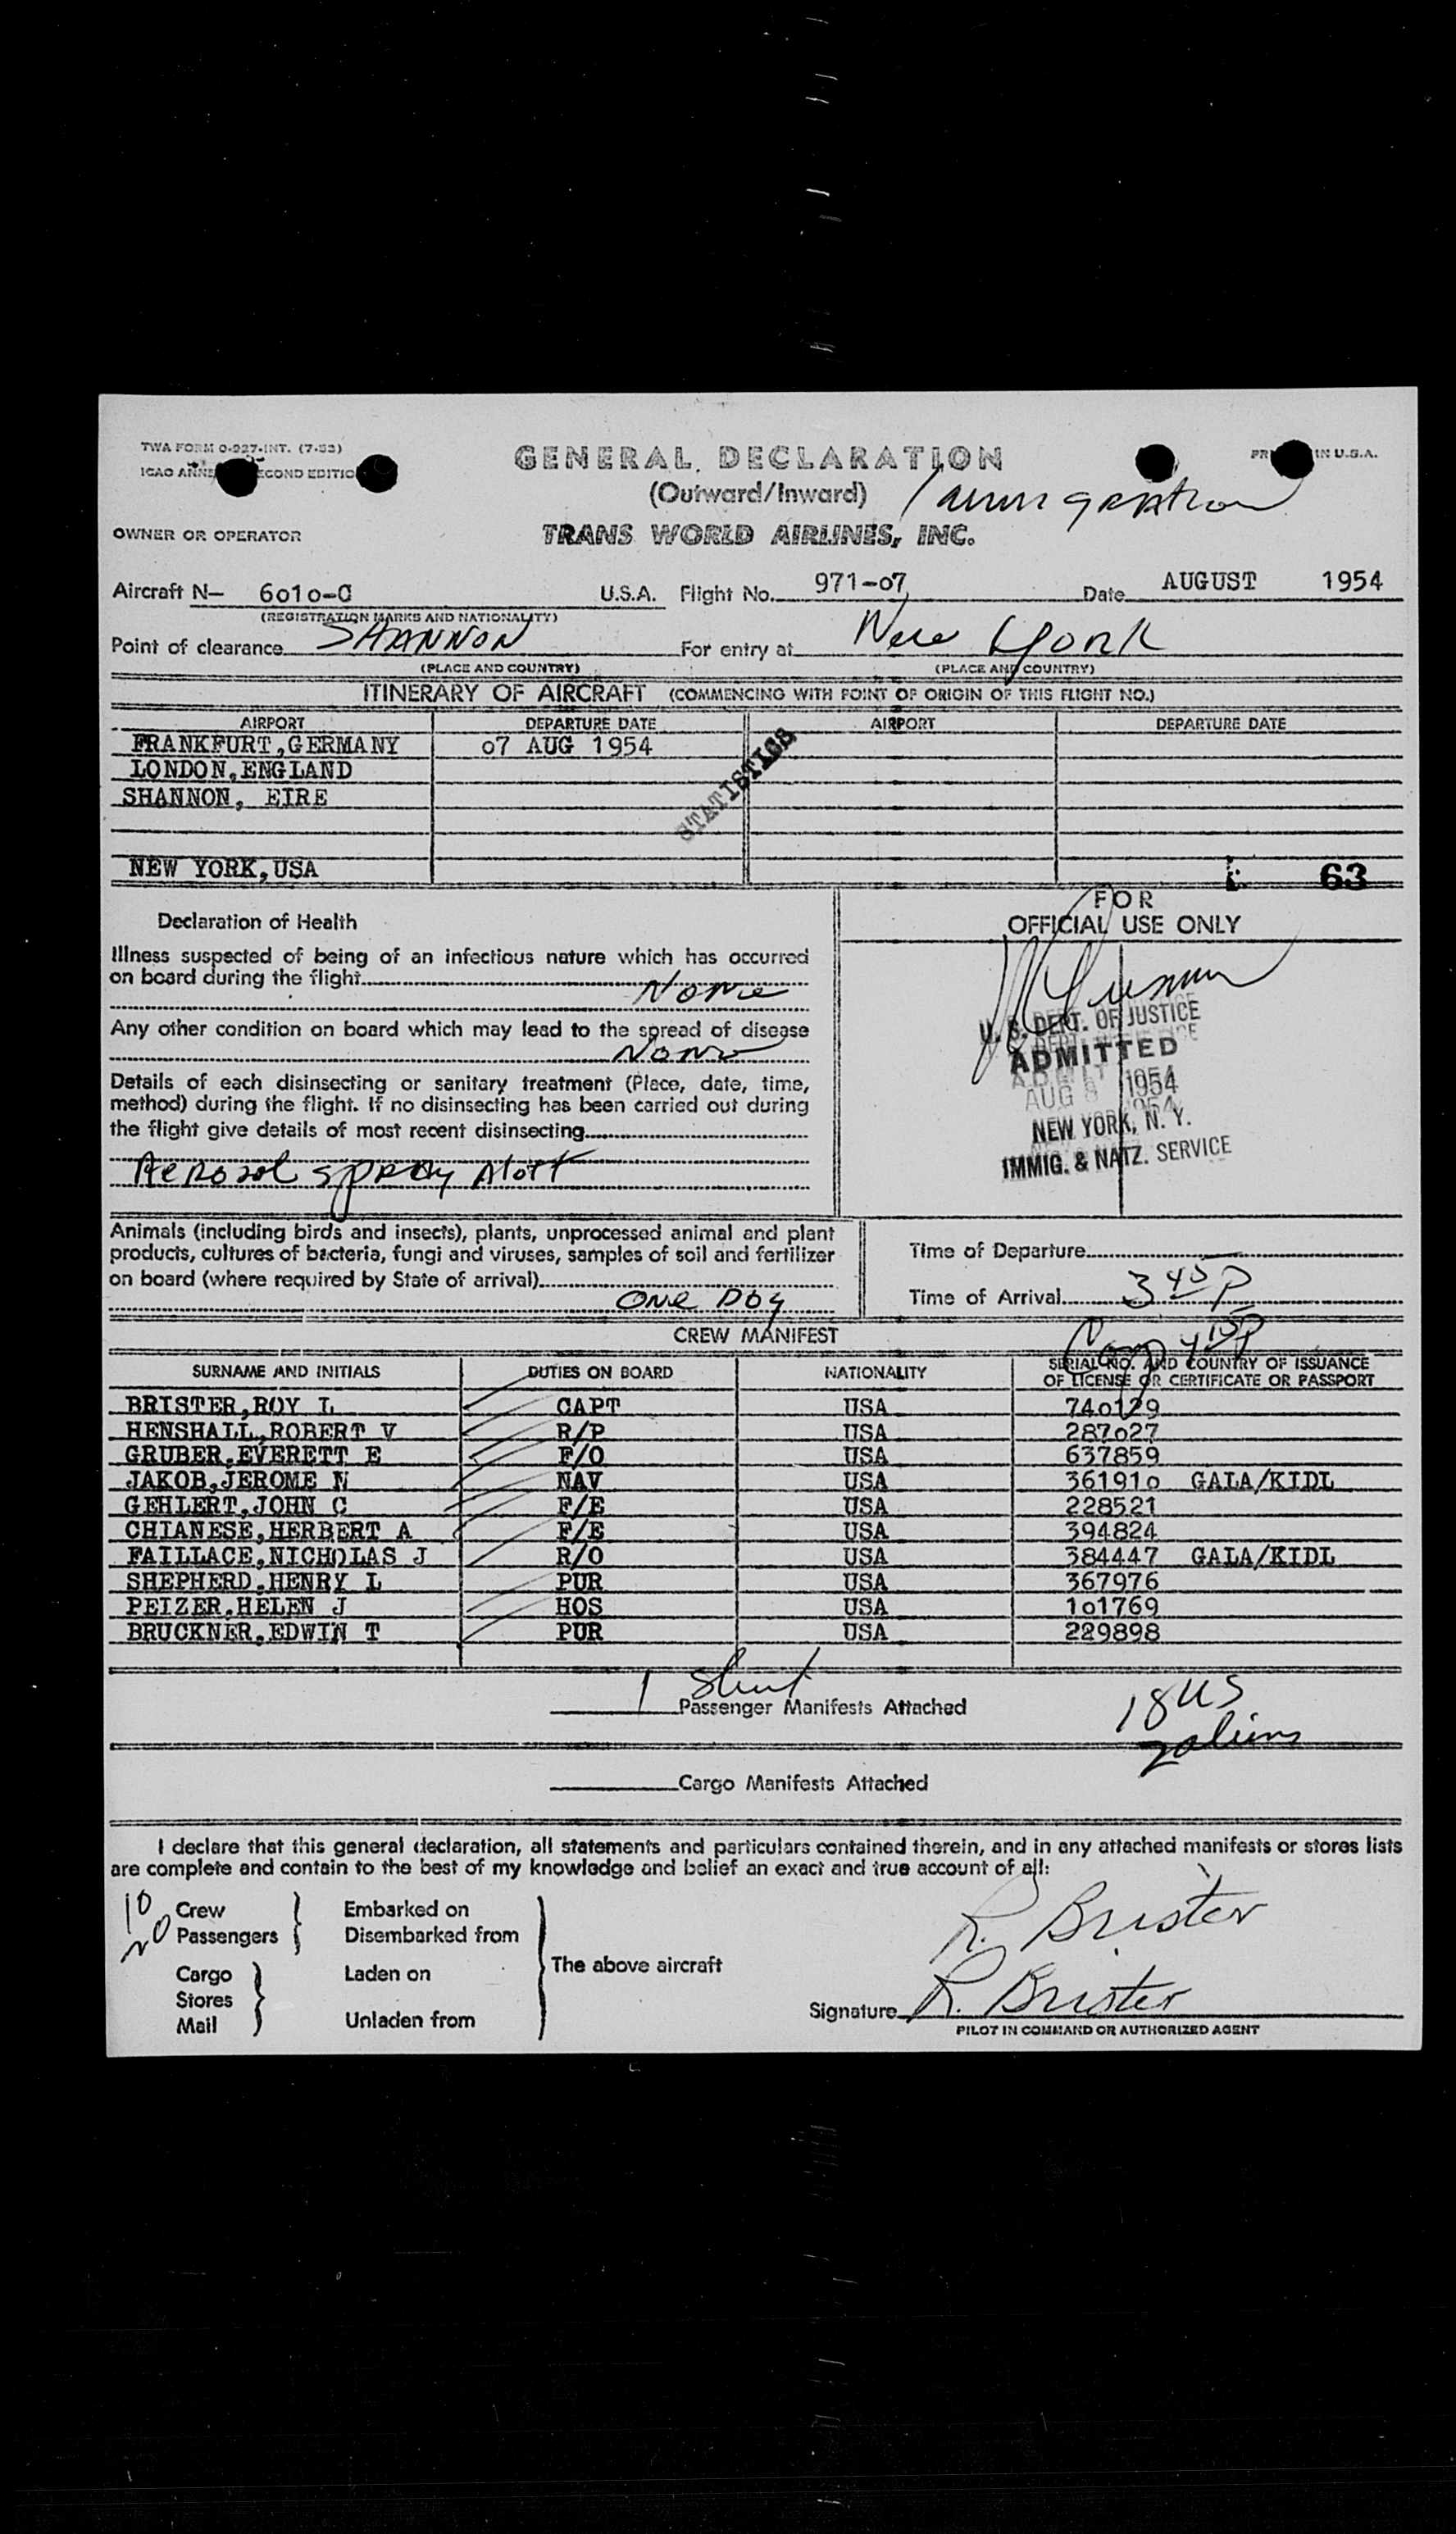 TWA FORM O-927-INT. (7-53)
GENERAL DECLARATION
(Outward/Inward)
Immigration
IN U.S.A.
OWNER OR OPERATOR
TRANS WORLD AIRLINES, INC.
Aircraft N- 6010-C U.S.A. Flight No. 971-07 Date AUGUST 1954
(REGISTRATION MARKS AND NATIONALITY)
Point of clearance SHANNON For entry at New York
(PLACE AND COUNTRY) (PLACE AND COUNTRY)
ITINERARY OF AIRCRAFT (COMMENCING WITH POINT OF ORIGIN OF THIS FLIGHT NO.)
AIRPORT DEPARTURE DATE AIRPORT DEPARTURE DATE
FRANKFURT,GERMANY 07 AUG 1954
LONDON,ENGLAND
SHANNON, EIRE
STATISTICS
NEW YORK,USA
63
Declaration of Health
FOR
OFFICIAL USE ONLY
Illness suspected of being of an infectious nature which has occurred
on board during the flight
None
Any other condition on board which may lead to the spread of disease
None
Details of each disinsecting or sanitary treatment (Place, date, time,
method) during the flight. If no disinsecting has been carried out during
the flight give details of most recent disinsecting
Aerosol spray Aloft
U. S. DEPT. OF JUSTICE
ADMITTED
AUG 8 1954
NEW YORK, N. Y.
IMMIG. & NATZ. SERVICE
Animals (including birds and insects), plants, unprocessed animal and plant
products, cultures of bacteria, fungi and viruses, samples of soil and fertilizer
on board (where required by State of arrival)
One Dog
Time of Departure
Time of Arrival 3 45 P
CREW MANIFEST
4 15 P
SURNAME AND INITIALS DUTIES ON BOARD NATIONALITY SERIAL NO. AND COUNTRY OF ISSUANCE
OF LICENSE OR CERTIFICATE OR PASSPORT
BRISTER,ROY L CAPT USA 740129
HENSHALL,ROBERT V R/P USA 287027
GRUBER,EVERETT E F/O USA 637859
JAKOB,JEROME N NAV USA 361910 GALA/KIDL
GEHLERT,JOHN C F/E USA 228521
CHIANESE,HERBERT A F/E USA 394824
FAILLACE,NICHOLAS J R/O USA 384447 GALA/KIDL
SHEPHERD,HENRY L PUR USA 367976
PEIZER,HELEN J HOS USA 101769
BRUCKNER,EDWIN T PUR USA 229898
1 Sheet
Passenger Manifests Attached
18 US
2 aliens
Cargo Manifests Attached
I declare that this general declaration, all statements and particulars contained therein, and in any attached manifests or stores lists
are complete and contain to the best of my knowledge and belief an exact and true account of all:
10 Crew Embarked on
20 Passengers Disembarked from
The above aircraft
Cargo Laden on
Stores
Mail Unladen from
R. Brister
Signature R. Brister
PILOT IN COMMAND OR AUTHORIZED AGENT